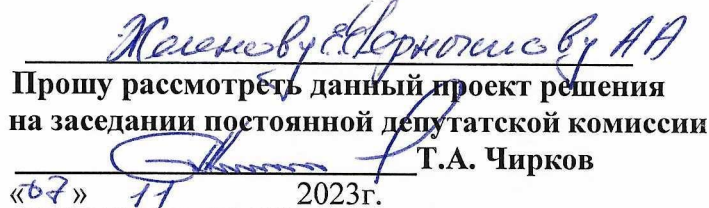 А А
Прошу рассмотреть данный проект решения
на заседании постоянной депутатской комиссии
Т.А. Чирков
«07» 11 2023г.